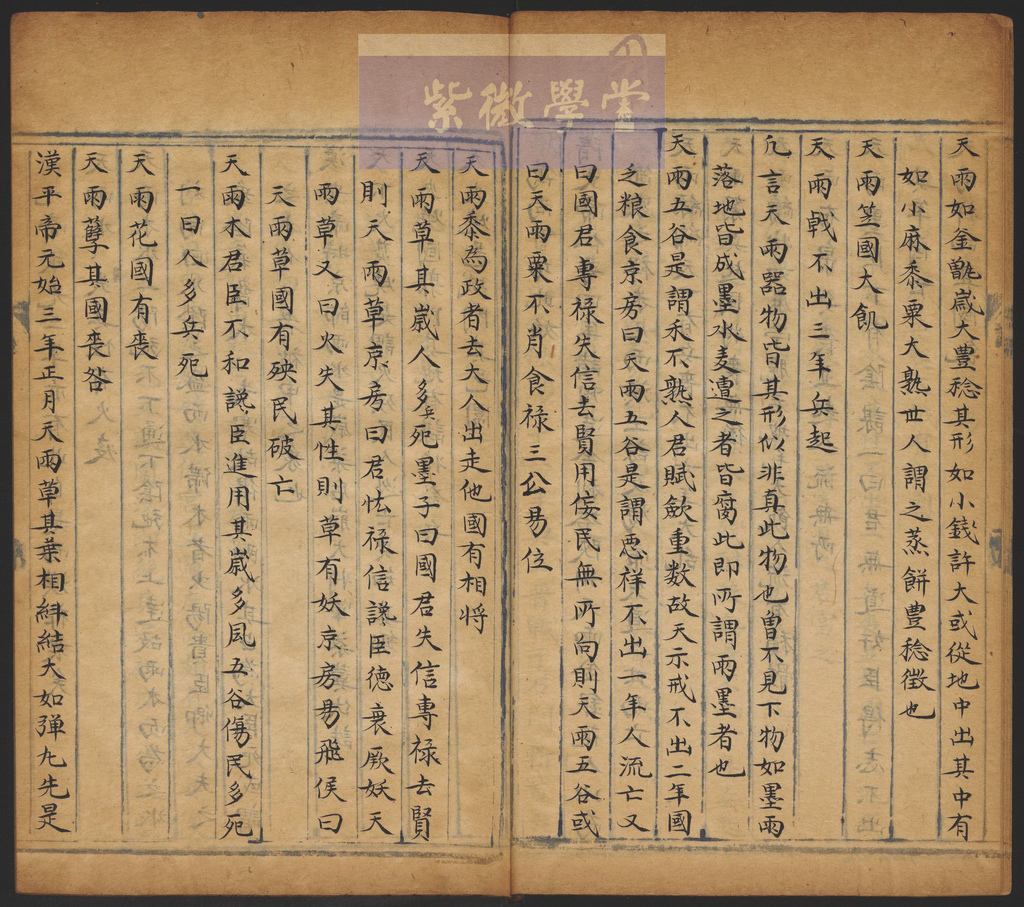 紫微學堂
天雨如釜甑歲大豊稔其形如小錢許大或從地中出其中有
如小麻黍粟大熟世人謂之蒸餅豊稔徵也
天雨笠國大飢
天雨戟不出三年兵起
凢言天雨器物皆其形似非真此物也曽不見下物如墨雨
落地皆成墨水麦遭之者皆腐此即所謂雨墨者也
天雨五谷是謂禾不熟人君賦斂重数故天示戒不出二年國
之粮食京房曰天雨五谷是謂悪祥不出一年人流亡又
曰國君專禄失信去賢用佞民無所向則天雨五谷或
曰天雨粟不肖食禄三公易位
天雨黍為政者去大人出走他國有相将
天雨草其嵗人多兵死墨子曰國君失信專禄去賢
則天雨草京房曰君怯禄信讒臣德衰厥妖天
雨草又曰火失其性則草有妖京房易飛侯曰
天雨草國有殃民破亡
天雨木君臣不和讒臣進用其嵗多風五谷傷民多死
一曰人多兵死
天雨花國有喪
天雨孽其國喪咎
漢平帝元始三年正月天雨草其葉相紏結大如弾九先是